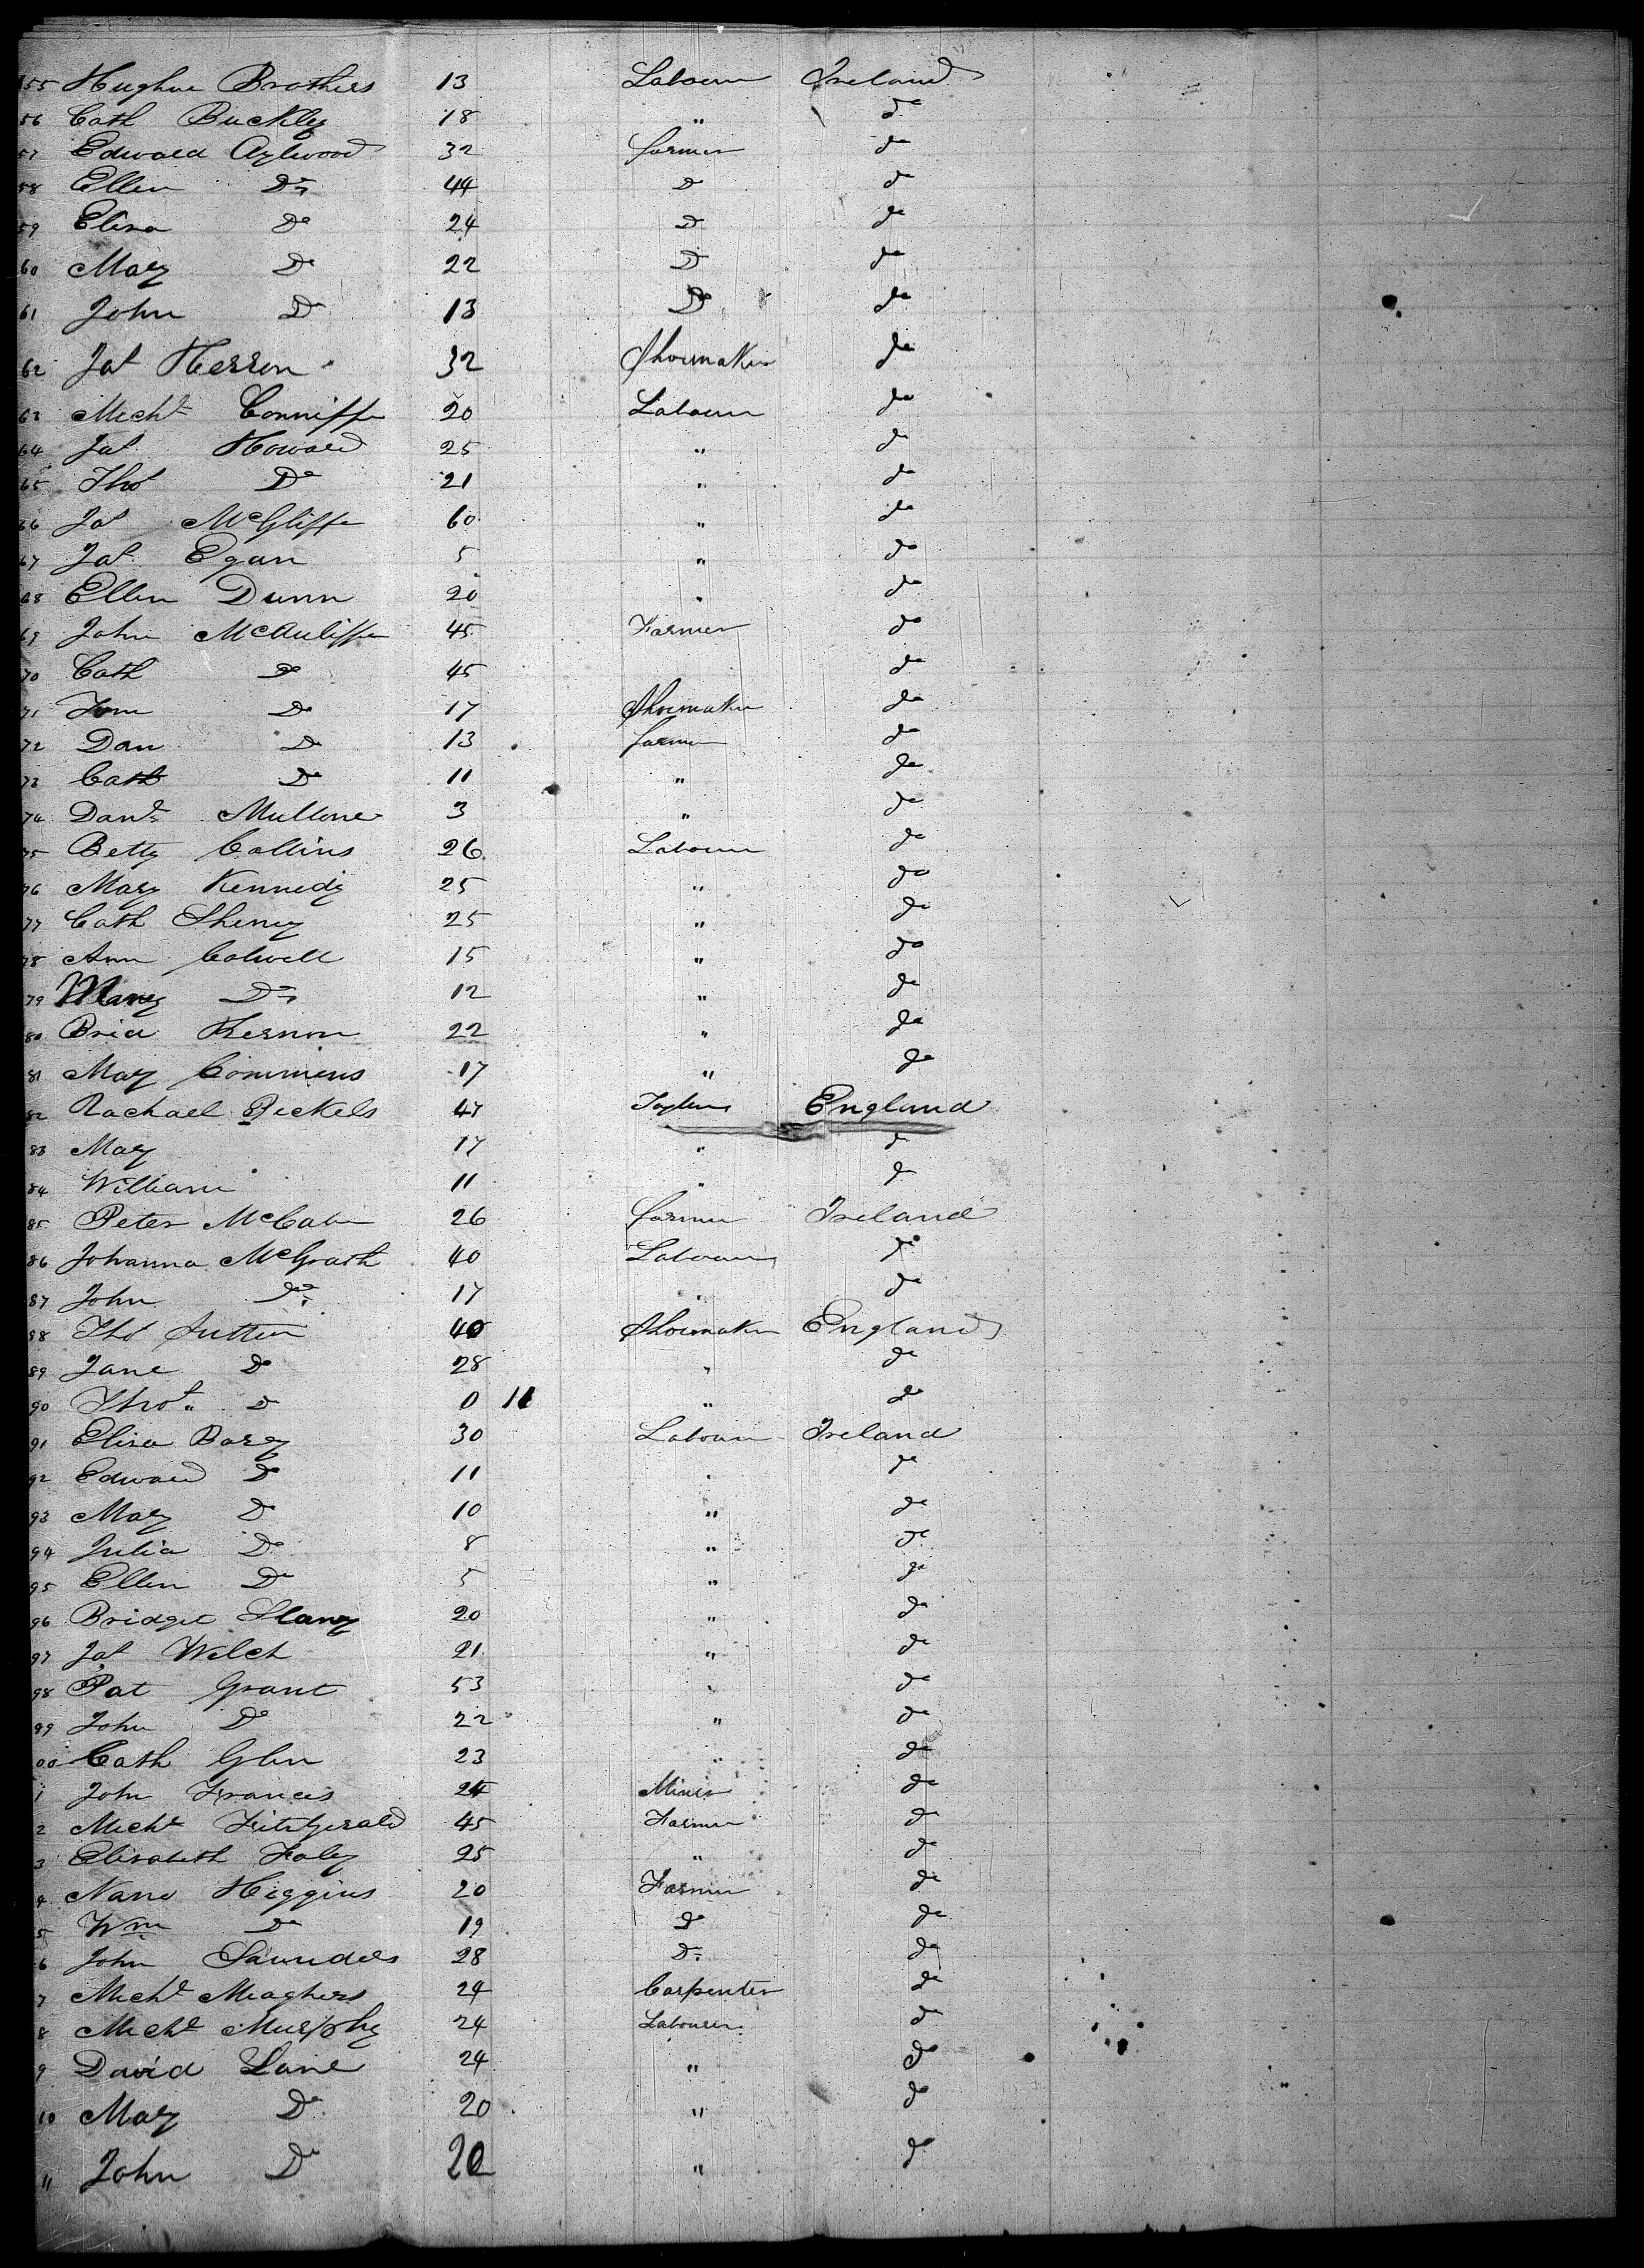 155 Hughue Brothers 13 Labour Ireland
56 Cath Buckley 18 " do
57 Edward Aylwood 32 farmer do
58 Ellen Do 44 D do
59 Elisa Do 24 D do
60 Mary Do 22 D do
61 John D 13 Do do
62 Jas Herron 32 Shoemaker do
63 Michl Conniffe 20 Labour do
64 Jas Howard 25 " do
65 Thos Do 21 " do
66 Jas McGliffe 60 " do
67 Jas Egan 5 " do
68 Ellen Dunn 20 " do
69 John McAuliffe 45 Farmer do
70 Cath Do 45 do
71 Tom Do 17 Shoemaker do
72 Dan Do 13 farmer do
73 Cath Do 11 " do
74 Danl Mullone 3 " do
75 Betty Collins 26 Labour do
76 Mary Kennedy 25 " do
77 Cath Sheney 25 " do
78 Ann Colwell 15 " do
79 Mary Do 12 " do
80 Brid Kernon 22 " do
81 Mary Commins 17 " do
82 Rachael Pickels 47 England
83 Mary 17 " do
84 William 11 " do
85 Peter McCabe 26 farmer Ireland
86 Johanna McGrath 40 Labour do
87 John Do 17 " do
88 Thos Sutten 40 Shoemaker England
89 Jane Do 28 " do
90 Thos D 0 11 " do
91 Elisa Bary 30 Labour Ireland
92 Edward Do 11 " do
93 Mary Do 10 " do
94 Julia Do 8 " do
95 Ellen Do 5 " do
96 Bridget Slany 20 " do
97 Jas Welch 21 " do
98 Pat Grant 53 " do
99 John Do 22 " do
00 Cath Glin 23 " do
1 John Francis 24 Miner do
2 Michl Fitzgerald 45 Farmer do
3 Elisabeth Foley 25 " do
4 Nano Higgins 20 Farmer do
5 Wm Do 19 Do do
6 John Saunders 28 Do do
7 Michl Meaghers 24 Carpenter do
8 Michl Murphy 24 Labourer do
9 David Lane 24 " do
10 Mary Do 20 " do
11 John Do 20 " do